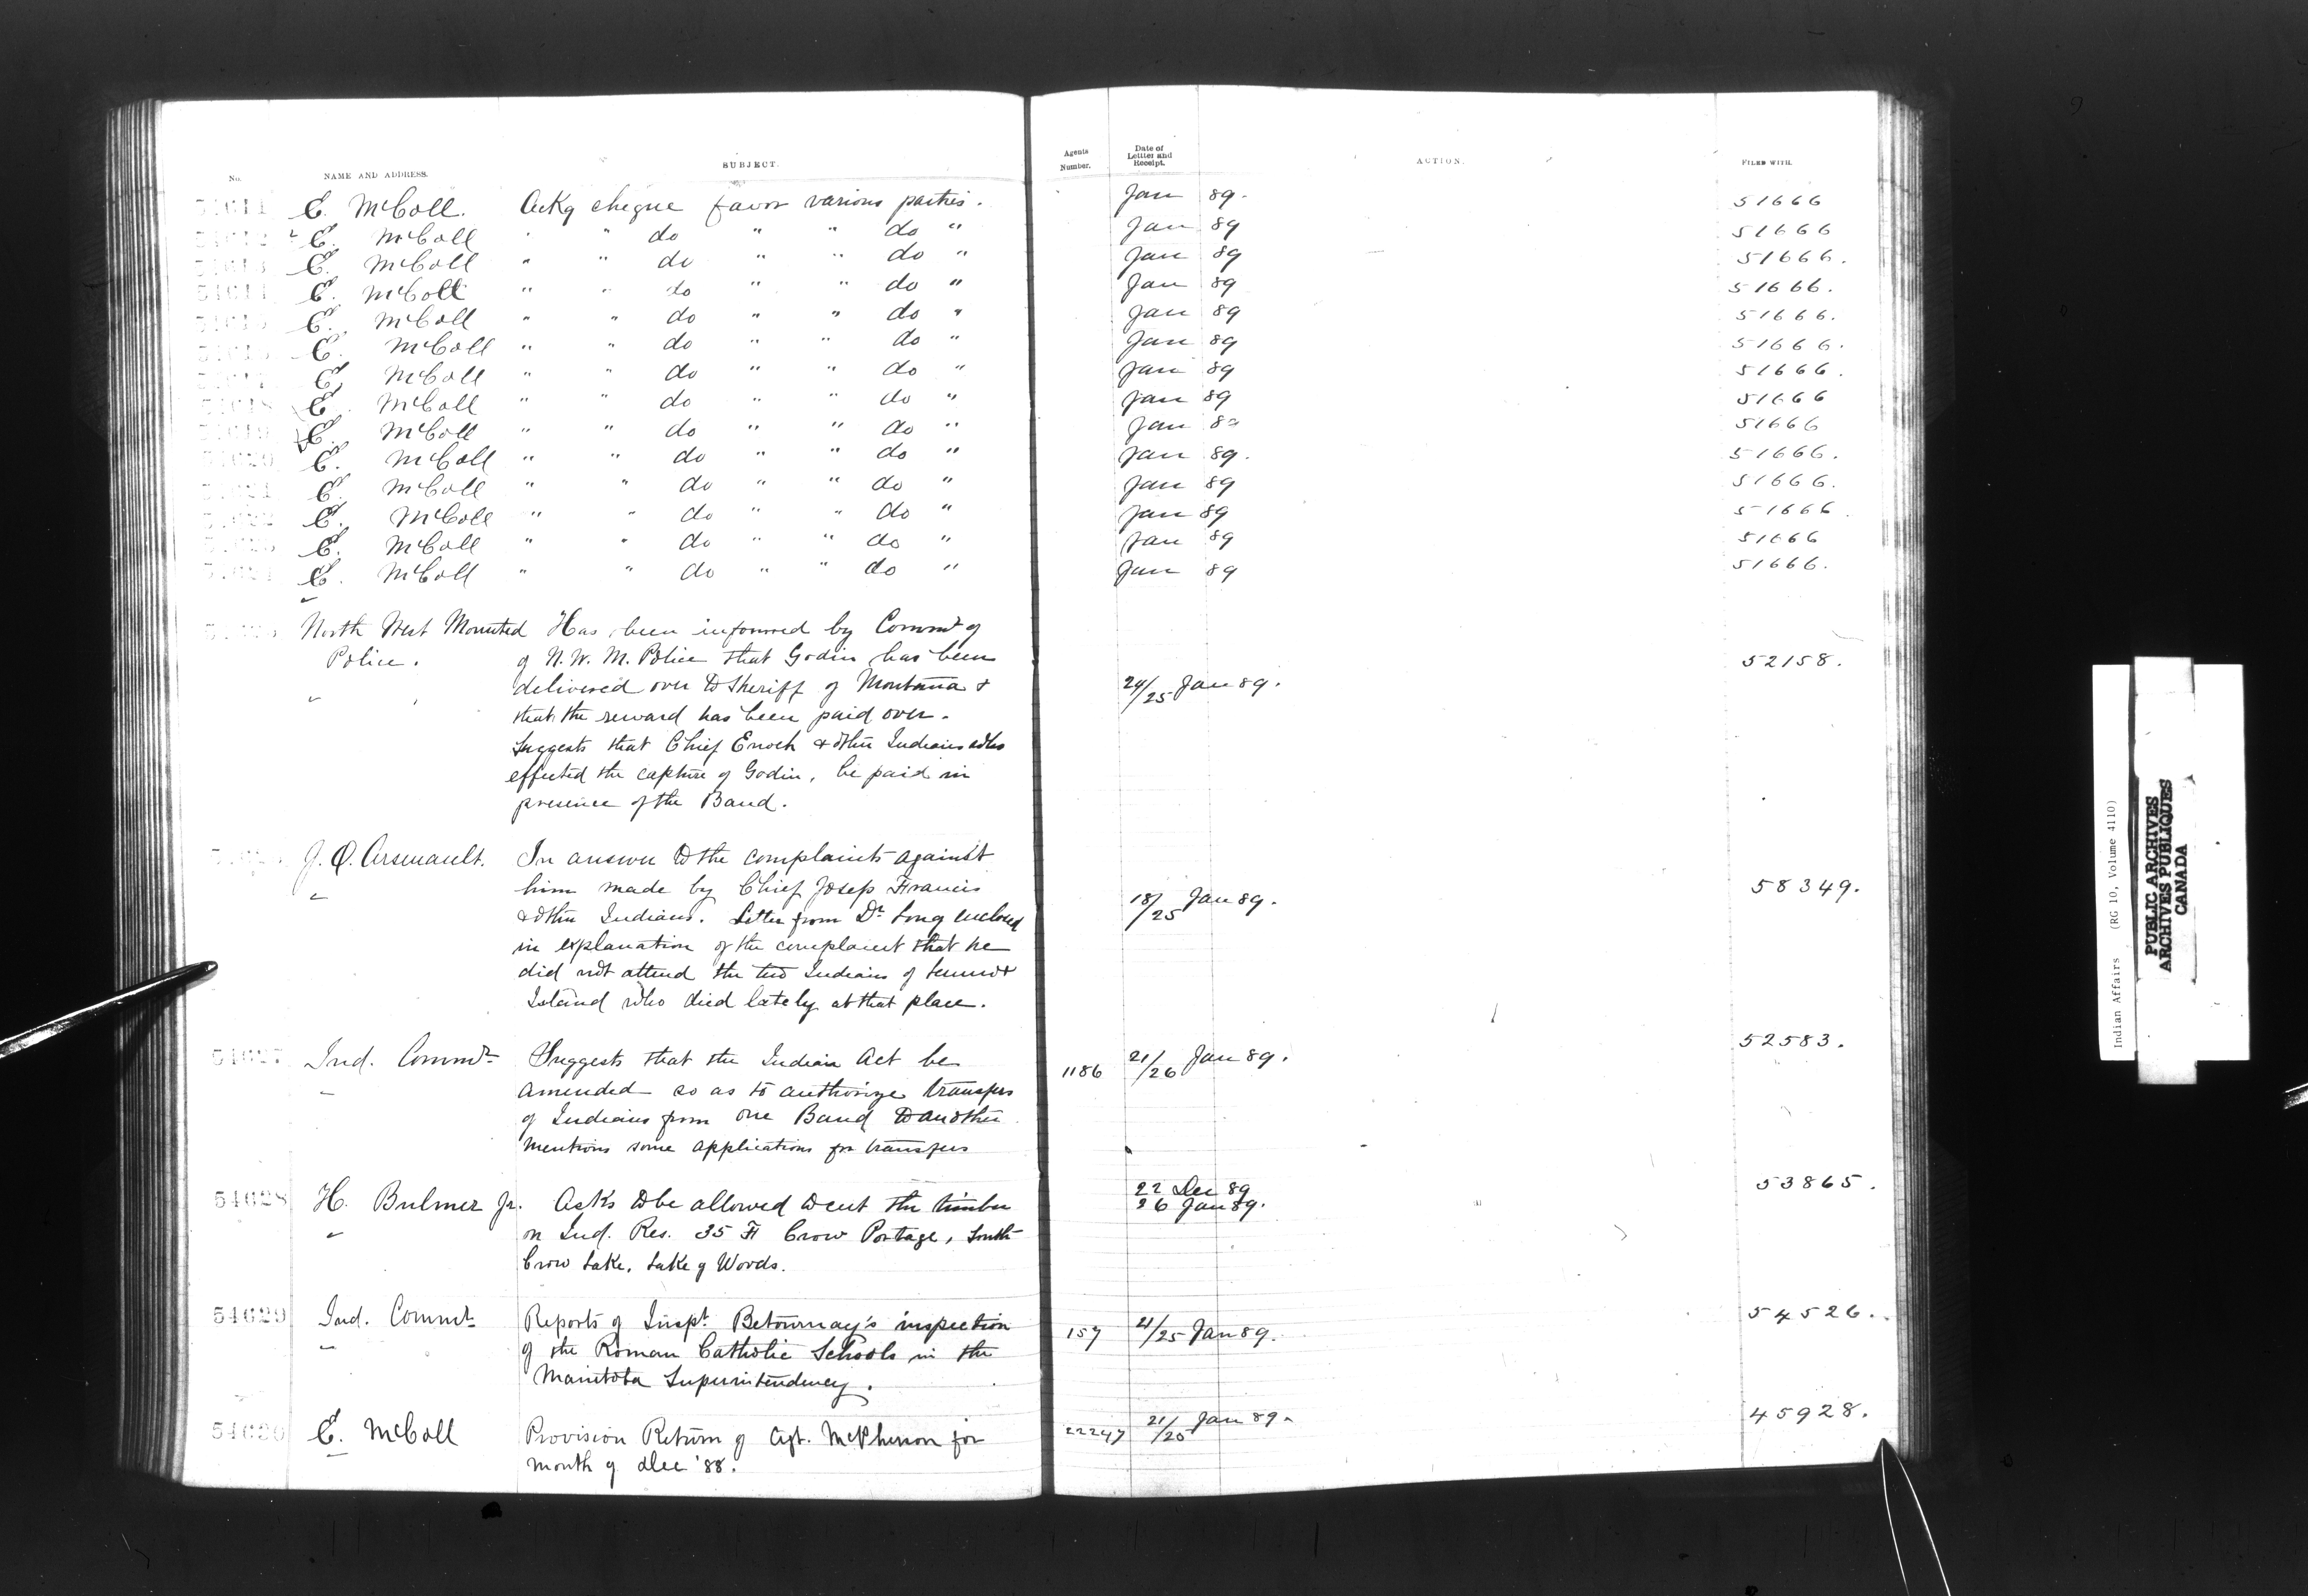 No. NAME AND ADDRESS. SUBJECT. Agents Number. Date of Letter and Receipt. ACTION. FILED WITH.
54611 E. McColl. Ackg cheque favor various parties. Jan 89. 51666
54612 E. McColl " " do " " do " Jan 89 51666
54613 E. McColl " " do " " do " Jan 89 51666.
54614 E. McColl " " do " " do " Jan 89 51666.
54615 E. McColl " " do " " do " Jan 89 51666.
54616 E. McColl " " do " " do " Jan 89 51666.
54617 E. McColl " " do " " do " Jan 89 51666.
54618 E. McColl " " do " " do " Jan 89 51666
54619 E. McColl " " do " " do " Jan 89 51666
54620 E. McColl " " do " " do " Jan 89. 51666.
54621 E. McColl " " do " " do " Jan 89 51666.
54622 E. McColl " " do " " do " Jan 89 51666.
54623 E. McColl " " do " " do " Jan 89 51666
54624 E. McColl " " do " " do " Jan 89 51666.
54625 North West Mounted Has been informed by Commr of
Police. of N.W.M. Police that Godin has been 52158.
delivered over to Sheriff of Montana & 24/25 Jan 89.
that the reward has been paid over.
Suggests that Chief Enoch & other Indians who
effected the capture of Godin, be paid in
presence of the Band.
54626 J. O. Arsenault. In answer to the complaints against
him made by Chief Josep Francis 58349.
& other Indians. Letter from Dr Long enclosed 18/25 Jan 89.
in explanation of the complaint that he
did not attend the two Indians of Lennox
Island who died lately at that place.
54627 Ind. Commr Suggests that the Indian Act be 1186 21/26 Jan 89. 52583.
amended so as to authorize transfers
of Indians from one Band to another
mentions some applications for transfers
54628 H. Bulmer Jr. Asks to be allowed to cut the timber 22 Dec 89 53865.
26 Jan 89.
on Ind. Res. 35 F Crow Portage, South
Crow Lake, Lake of Woods.
54629 Ind. Commr Reports of Inspt. Betournay's inspection 157 21/25 Jan 89. 54526.
of the Roman Catholic Schools in the
Manitoba Superintendency.
54630 E. McColl Provision Return of Agt. McPherson for 22247 21/25 Jan 89. 45928.
month of Dec '88.
Indian Affairs (RG 10, Volume 4110)
PUBLIC ARCHIVES
ARCHIVES PUBLIQUES
CANADA